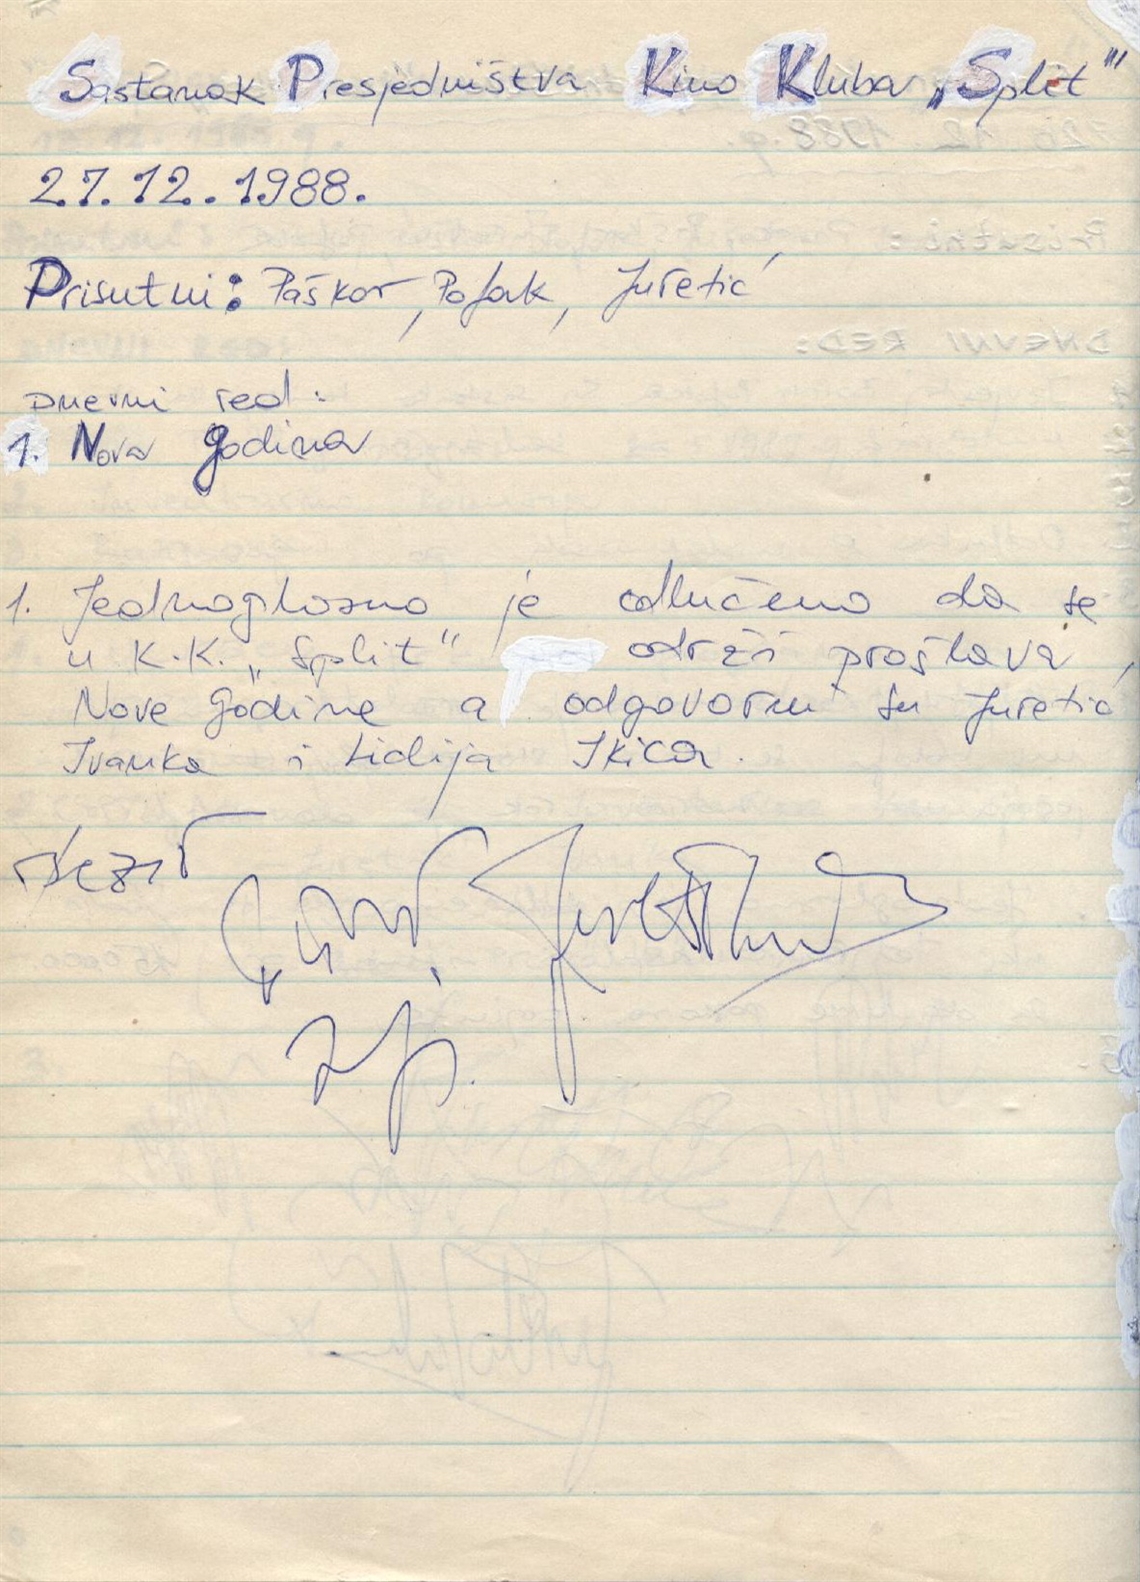 Sastanak Presjedništva Kino Kluba „Split"
27.12.1988.
Prisutni: Paškor, Poljak, Juretić
Dnevni red:
1. Nova godina
1. Jednoglasno je odlučeno da se
u K.K. „Split" održi proslava
Nove Godine a odgovorni su Juretić
Ivanka i Lidija Ikica.